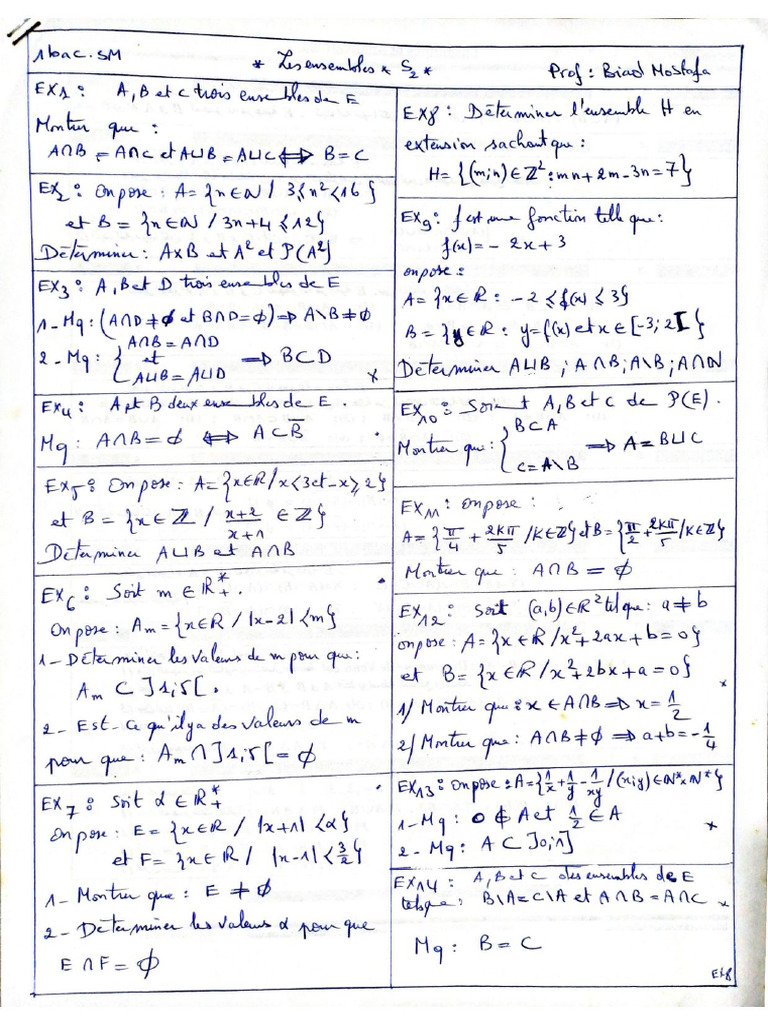 1bac.SM
* Les ensembles * S₂ *
Prof : Biad Mostafa
EX1 : A, B et C trois ensembles de E
Montrer que :
A∩B = A∩C et A∪B = A∪C ⟺ B = C
EX2 : on pose : A = {n∈ℕ / 3⩽n²<16}
et B = {n∈ℕ / 3n+4⩽12}
Déterminer : A×B et A² et P(A²)
EX3 : A, B et D trois ensembles de E
1-Mq : (A∩D≠∅ et B∩D=∅) ⟹ A\B≠∅
2-Mq : { A∩B = A∩D
et ⟹ B⊂D
A∪B = A∪D
EX4 : A et B deux ensembles de E.
Mq : A∩B = ∅ ⟺ A⊂B̄
EX5 : On pose : A = {x∈ℝ/x<3 et -x⩾2}
et B = {x∈ℤ / (x+2)/(x+1) ∈ℤ}
Déterminer A∪B et A∩B
EX6 : Soit m∈ℝ*₊.
On pose : Am = {x∈ℝ / |x-2|<m}
1- Déterminer les valeurs de m pour que :
Am ⊂ ]1;5[.
2- Est-ce qu'il y a des valeurs de m
pour que : Am∩]1;5[ = ∅
EX7 : Soit α∈ℝ*₊
On pose : E = {x∈ℝ / |x+1|<α}
et F = {x∈ℝ / |x-1|<3/2}
1- Montrer que : E ≠ ∅
2- Déterminer les valeurs α pour que
E∩F = ∅
EX8 : Déterminer l'ensemble H en
extension sachant que :
H = {(m;n)∈ℤ² : mn+2m-3n=7}
EX9 : f est une fonction telle que :
f(x) = -2x+3
on pose :
A = {x∈ℝ : -2⩽f(x)⩽3}
B = {y∈ℝ : y=f(x) et x∈[-3;2[}
Déterminer A∪B ; A∩B ; A\B ; A∩ℕ
EX10 : Soient A, B et C de P(E).
Montrer que : { B⊂A
C=A\B ⟹ A = B∪C
EX11 : on pose :
A = {π/4 + 2kπ/5 /k∈ℤ} et B = {π/2 + 2kπ/5 /k∈ℤ}
Montrer que : A∩B = ∅
EX12 : soit (a,b)∈ℝ² tel que : a≠b
on pose : A = {x∈ℝ/x²+2ax+b=0}
et B = {x∈ℝ/x²+2bx+a=0}
1/ Montrer que : x∈A∩B ⟹ x=1/2
2/ Montrer que : A∩B≠∅ ⟹ a+b=-1/4
EX13 : on pose : A = {1/x + 1/y - 1/xy / (x;y)∈ℕ*×ℕ*}
1-Mq : 0∉A et 1/2∈A
2-Mq : A⊂]0;1]
EX14 : A, B et C des ensembles de E
tel que : B\A=C\A et A∩B=A∩C
Mq : B = C